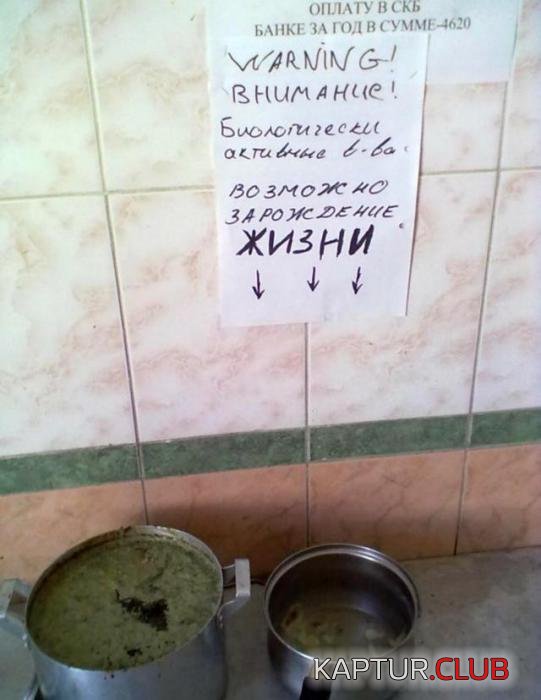 ОПЛАТУ В СКБ
БАНКЕ ЗА ГОД В СУММЕ-4620
WARNING!
ВНИМАНИЕ!
Биологически
активные в-ва.
ВОЗМОЖНО
ЗАРОЖДЕНИЕ
ЖИЗНИ
KAPTUR.CLUB